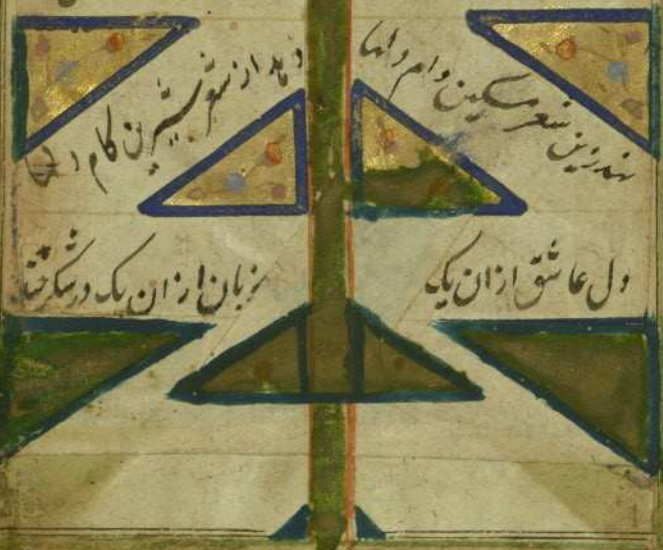 نهد زین شعر مسکین دام دلها
دهد از شعر شیرین کام دلها
دل عاشق ازان یک
زبان ازان یک در شکر